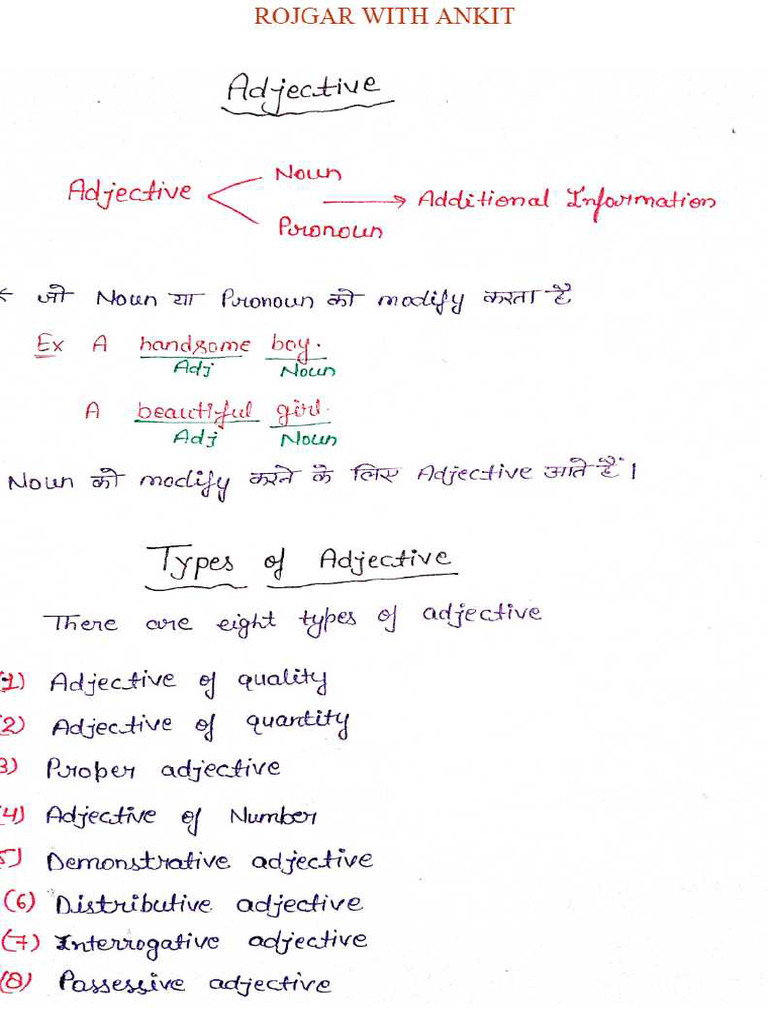 ROJGAR WITH ANKIT
Adjective
Noun
Adjective → Additional Information
Pronoun
← जो Noun या Pronoun को modify करता है
Ex A handsome boy.
Adj Noun
A beautiful girl.
Adj Noun
Noun को modify करने के लिए Adjective आते हैं।
Types of Adjective
There are eight types of adjective
(1) Adjective of quality
(2) Adjective of quantity
3) Proper adjective
(4) Adjective of Number
5) Demonstrative adjective
(6) Distributive adjective
(7) Interrogative adjective
(8) Possessive adjective